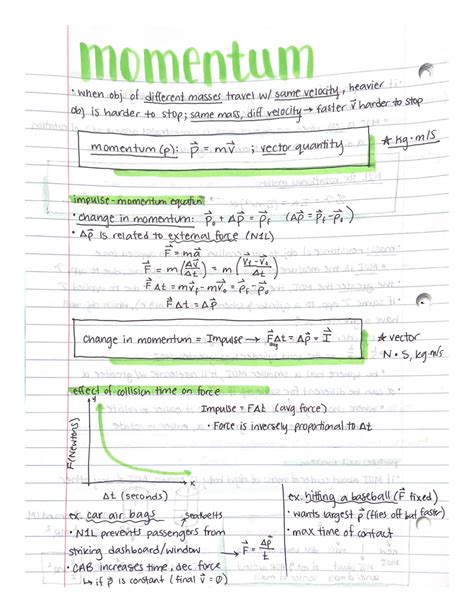 momentum
• when obj. of different masses travel w/ same velocity, heavier
obj is harder to stop; same mass, diff velocity → faster v⃗ harder to stop
momentum (p): p⃗ = mv⃗ ; vector quantity
★ kg·m/s
impulse-momentum equation
• change in momentum: p⃗₀ + Δp⃗ = p⃗f (Δp⃗ = p⃗f - p⃗₀)
• Δp⃗ is related to external force (N1L)
F⃗ = ma⃗
F⃗ = m(Δv⃗/Δt) = m(v⃗f - v⃗₀/Δt)
F⃗Δt = mv⃗f - mv⃗₀ = p⃗f - p⃗₀
F⃗Δt = Δp⃗
change in momentum = Impulse → F⃗avgΔt = Δp⃗ = I⃗
★ vector
N·s, kg·m/s
effect of collision time on force
y
F(Newtons)
x
Δt (seconds)
Impulse = FΔt (avg force)
• Force is inversely proportional to Δt
ex. car air bags
• N1L prevents passengers from
striking dashboard/window
→ F⃗ = Δp⃗/t
• CAB increases time, dec. force
↳ if p⃗ is constant (final v⃗ = 0)
ex. hitting a baseball (F⃗ fixed)
• wants largest p⃗ (flies off bat faster)
• max time of contact